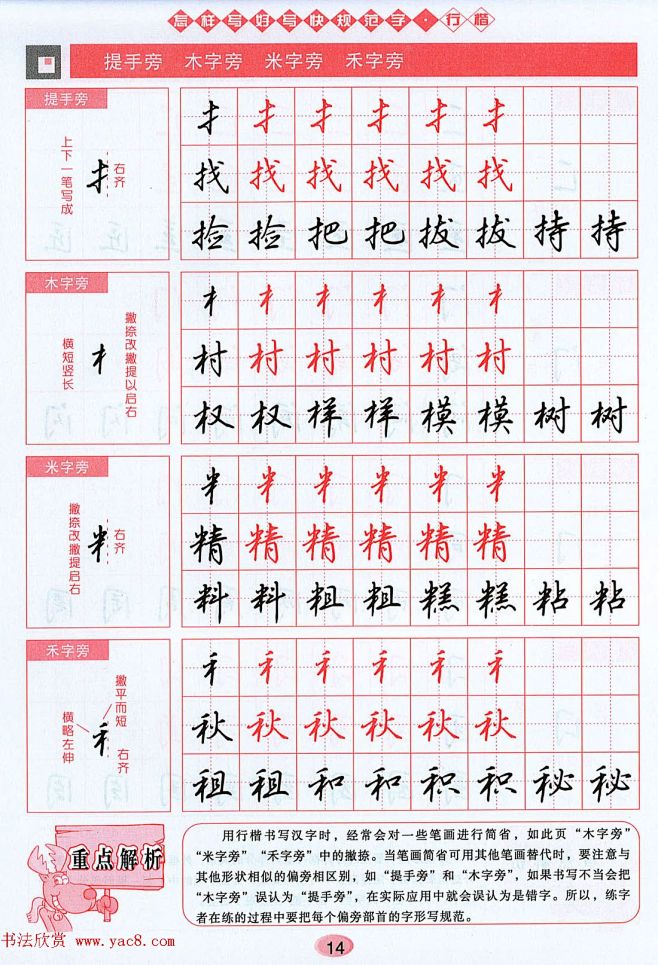 怎样写好写快规范字·行楷
提手旁 木字旁 米字旁 禾字旁
提手旁
上下一笔写成
右齐
扌 扌 扌 扌 扌 扌
扌
找 找 找 找 找 找
捡 捡 把 把 拔 拔 持 持
木字旁
横短竖长
撇捺改撇提以启右
木 木 木 木 木 木
木
村 村 村 村 村 村
权 权 样 样 模 模 树 树
米字旁
撇捺改撇提启右
右齐
米 米 米 米 米 米
米
精 精 精 精 精 精
料 料 粗 粗 糕 糕 粘 粘
禾字旁
撇平而短
横略左伸
右齐
禾 禾 禾 禾 禾 禾
禾
秋 秋 秋 秋 秋 秋
租 租 和 和 积 积 秘 秘
重点解析
用行楷书写汉字时，经常会对一些笔画进行简省，如此页“木字旁”
“米字旁”“禾字旁”中的撇捺。当笔画简省可用其他笔画替代时，要注意与
其他形状相似的偏旁相区别，如“提手旁”和“木字旁”，如果书写不当会把
“木字旁”误认为“提手旁”，在实际应用中就会误认为是错字。所以，练字
者在练的过程中要把每个偏旁部首的字形写规范。
书法欣赏 www.yac8.com
14